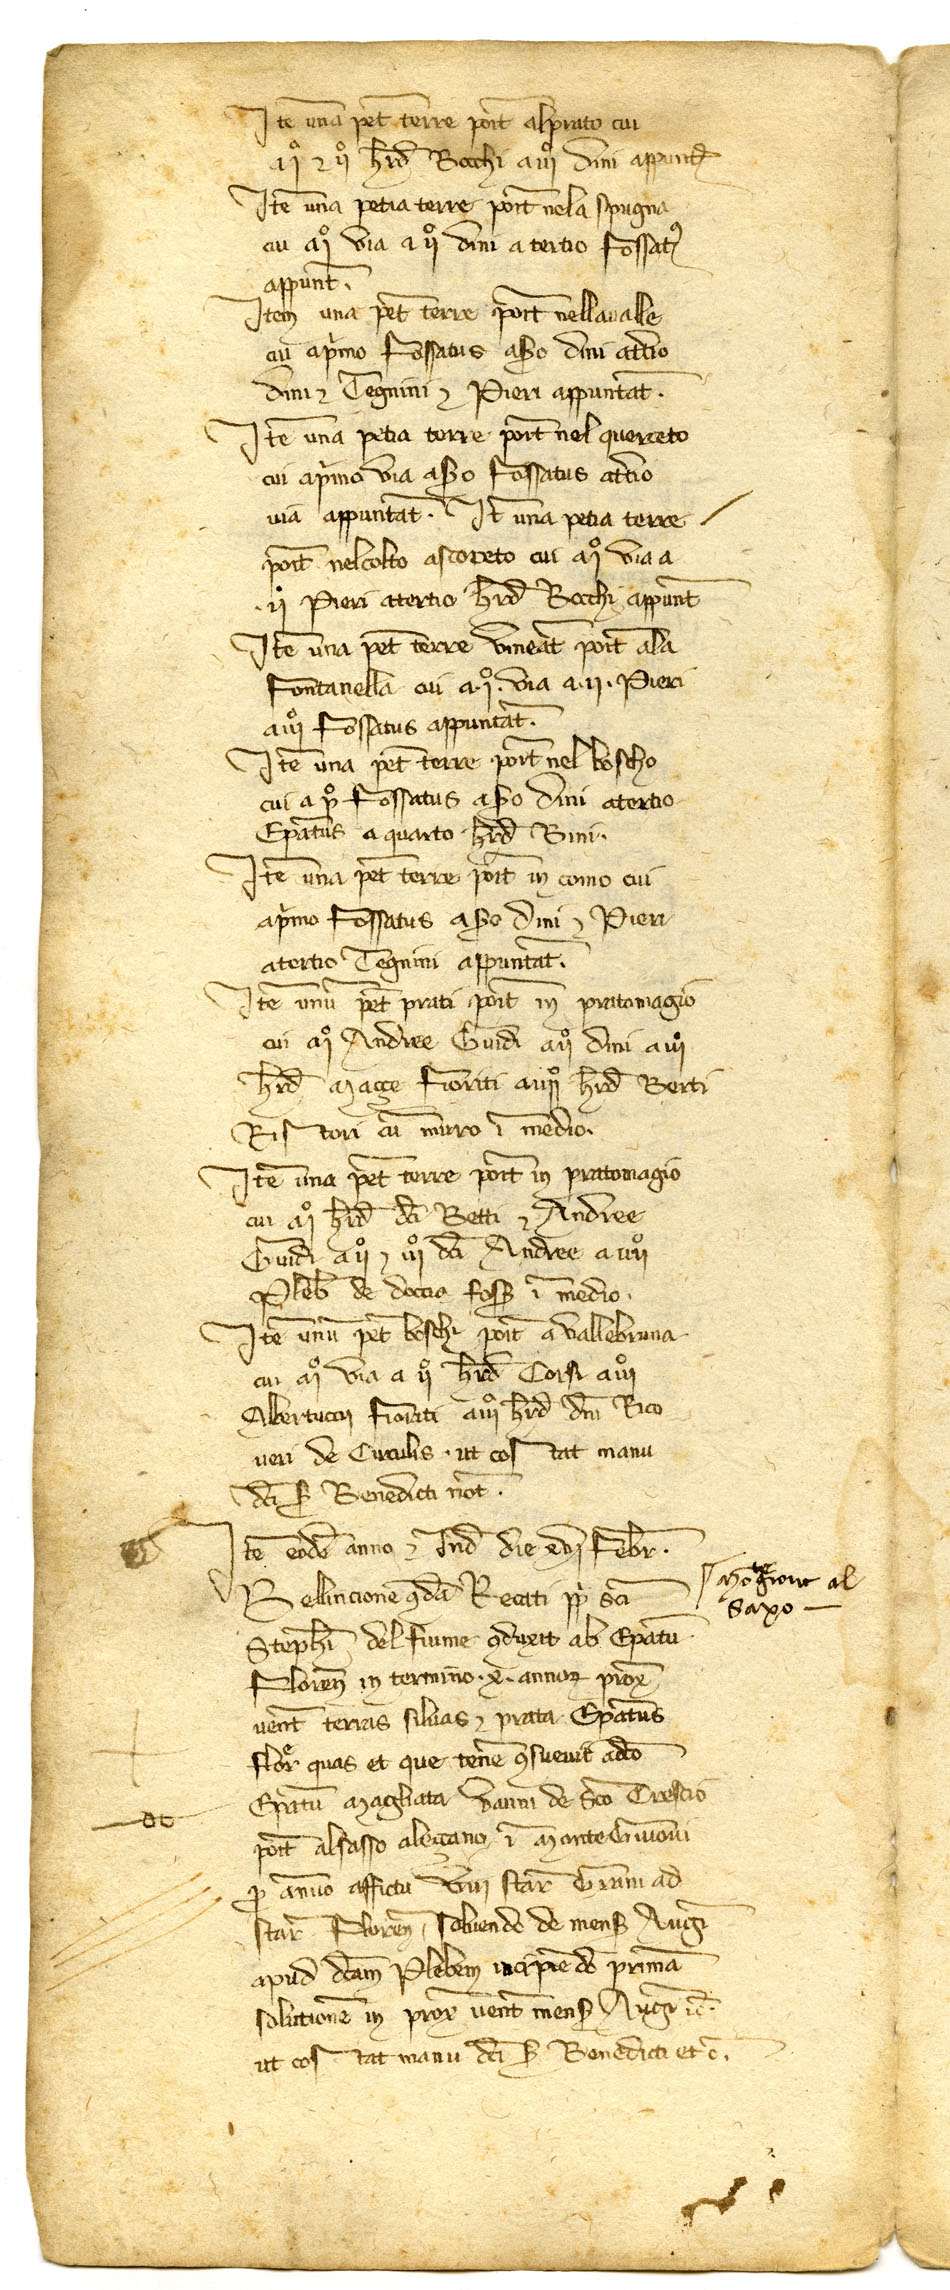 Ite una pet terre posit alprato cui
a i° ⁊ ii° hrd Bocchi a iii° dini appunt
Ite una petia terre posit nela spugna
cui a i° via a ii° dini a tertio fossat9
appunt.
Item una pet terre posit nellavalle
cui aprimo fossatus a sco dini attio
dini ⁊ Tegnini ⁊ Pieri appuntat.
Ite una petia terre posit nel querceto
cui aprimo via a sco fossatus attio
via appuntat. It una petia terre
posit nelcolto ascoreto cui a i° via a
.ii° Pieri atertio hrd Bocchi appunt
Ite una pet terre vineat posit ala
fontanella cui a .i°. via a .ii. Pieri
a iii° fossatus appuntat.
Ite una pet terre posit nel boscho
cui a p° fossatus a sco dini atertio
Epatus a quarto hrd Bini.
Ite una pet terre posit in como cui
aprimo fossatus a sco dini ⁊ Pieri
atertio Tegnini appuntat.
Ite unu pet prati posit in pratomagio
cui a i° Andree Guidi a ii° dini a iii°
hrd Magge fioriti a iiii° hrd Berti
Ristori cu muro i medio.
Ite una pet terre posit in pratomagio
cui a i° hrd dci Betti ⁊ Andree
Guidi a ii° ⁊ iii° dci Andree a iiii°
Pleb de doccia foss i medio.
Ite unu pet boschi posit a vallebruna
cui a i° via a ii° hrd Corsi a iii°
Albertuccii fioriti a iiii° hrd dni Rico
veri de Circulis. ut costat manu
dci s Benedicti not.
Ite eode anno ⁊ Ind die xvi febr.
Bellincione qda Recati pp sci
Stephi del fiume 9duxit ab Epatu
Floren in termino .x. annoꝝ prox
vent terras silvas ⁊ prata Epatus
flor quas et que tene 9suevit a dco
Epatu Maghata vanni de Sco Crescio
posit alsasso alegano i Monte Crivoni
p annuo affictu viii star Grani ad
star Floren, solvendo de mens Aug
apud dcam Plebem incipiedo prima
solutione in prox vent mens Aug
ut costat manu dci s Benedicti et c.
al
Saxo